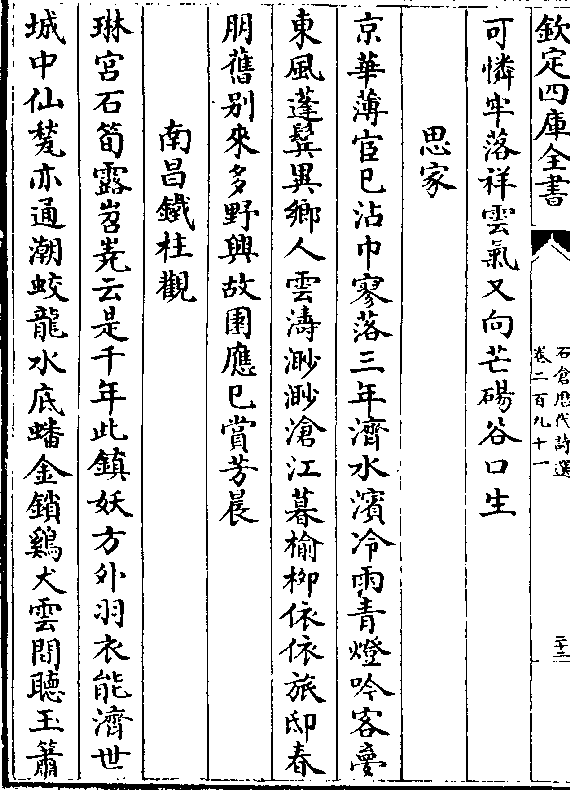 欽定四庫全書
石倉歷代詩選
卷二百九十一
二十三
可憐牢落祥雲氣又向芒碭谷口生
思家
京華薄宦已沾巾寥落三年濟水濱冷雨青燈吟客夢
東風蓬鬂異鄉人雲濤渺渺滄江暮榆柳依依旅邸春
朋舊别來多野興故園應已賞芳晨
南昌鐵柱觀
琳宫石筍露岧嶤云是千年此鎮妖方外羽衣能濟世
城中仙甃亦通潮蛟龍水底蟠金鎖鷄犬雲間聽玉簫